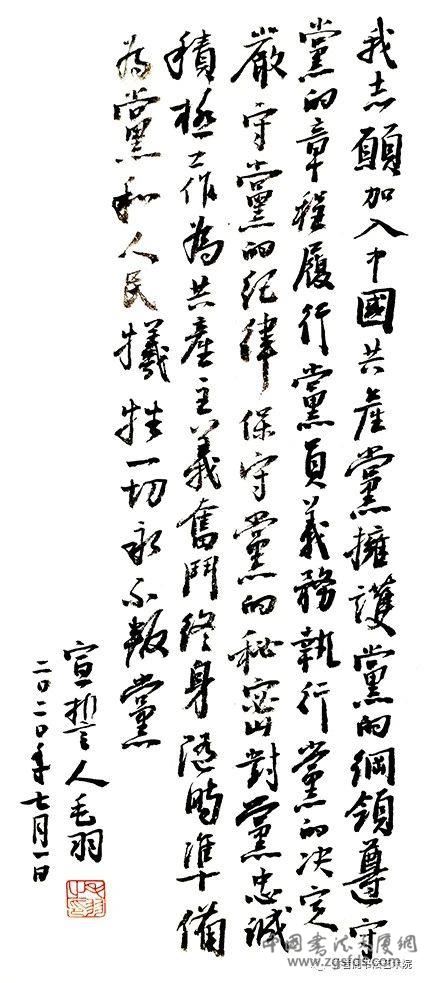 我志願加入中國共產黨擁護黨的綱領尊守
黨的章程履行黨員義務執行黨的决定
嚴守黨的紀律保守黨的秘密對黨忠誠
積極工作為共產主義奮鬥終身隨時準備
為黨和人民犧牲一切永不叛黨
宣誓人毛羽
二〇二〇年七月一日
中国书法大厦網
www.zgsfds.com